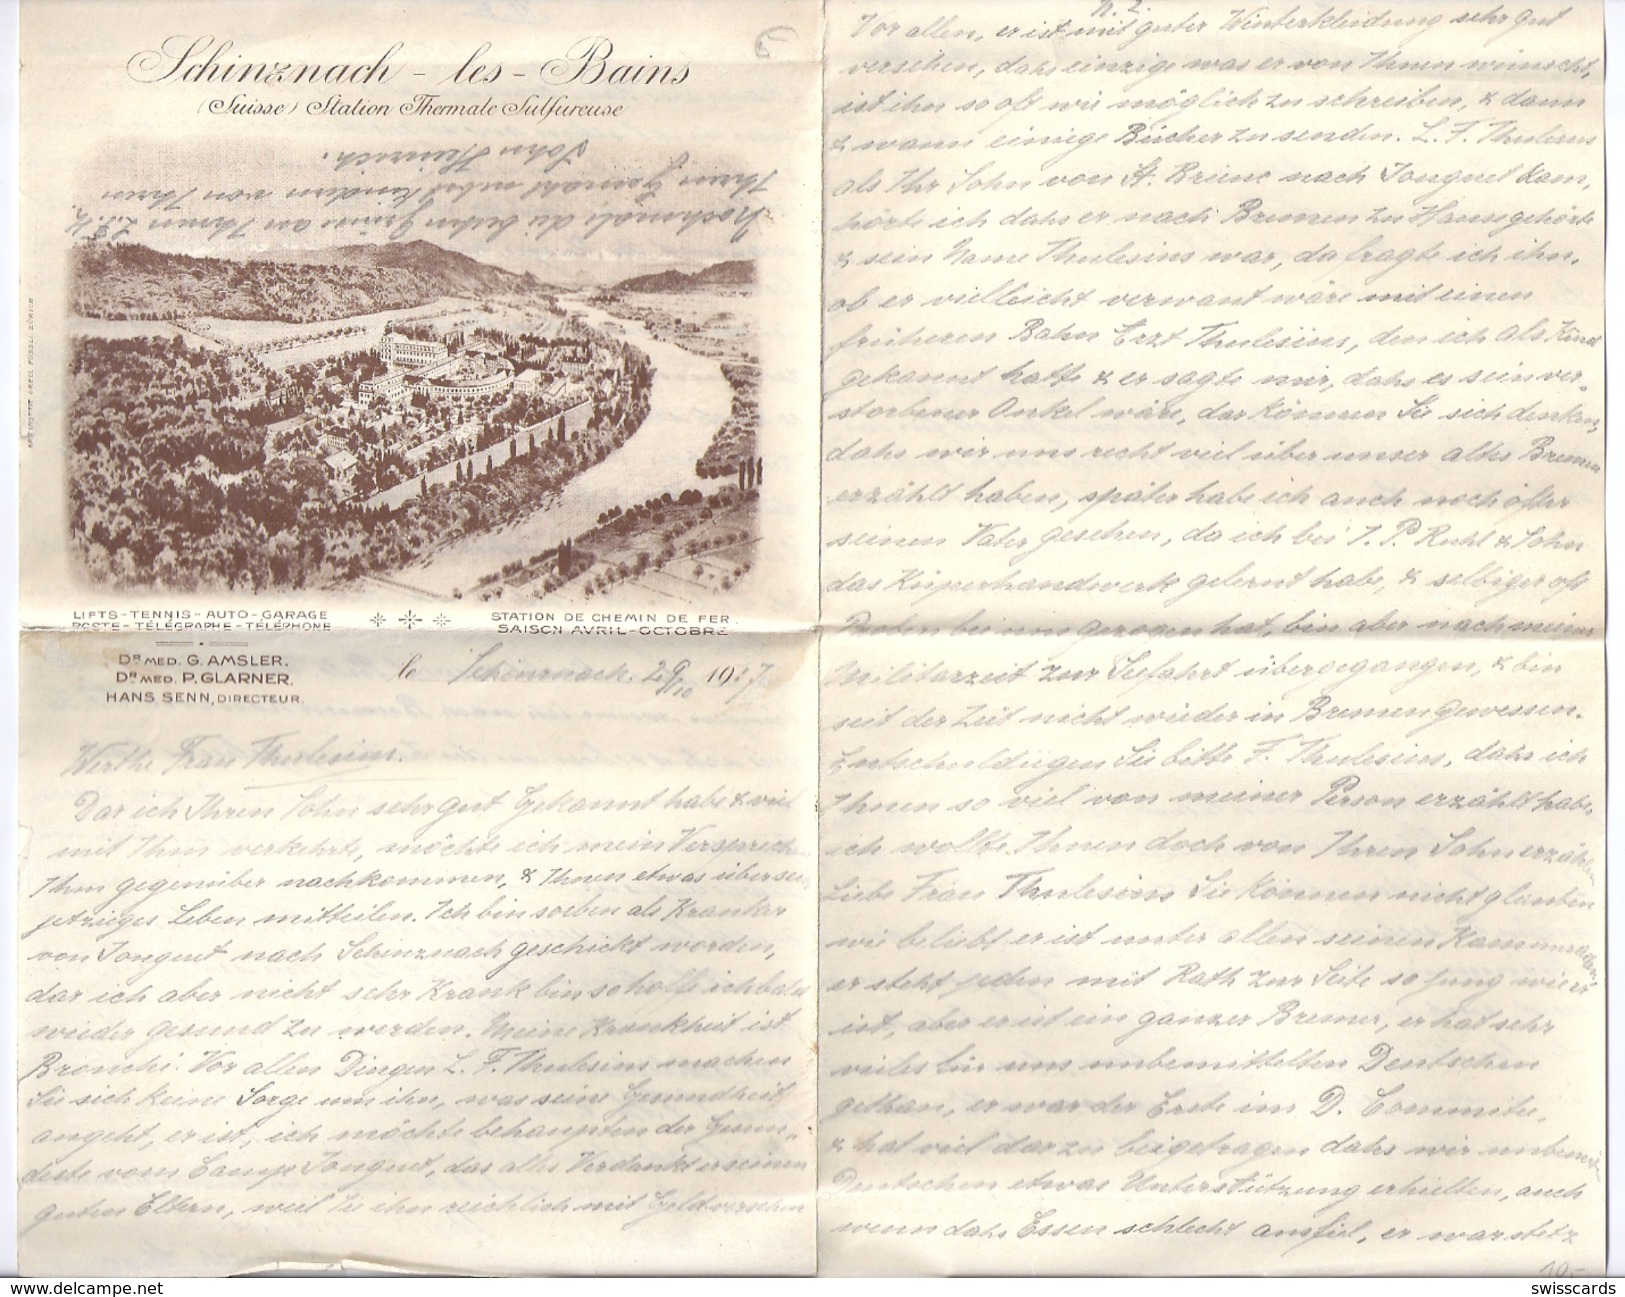 Schinznach - les - Bains
(Suisse) Station Thermale Sulfureuse
Nochmals die besten Grüsse an Ihnen L. F. T.
Ihren Gemahl nebst Kindern von Ihren
John Heinrich.
LIFTS - TENNIS - AUTO - GARAGE
POSTE - TÉLÉGRAPHE - TÉLÉPHONE
STATION DE CHEMIN DE FER.
SAISON AVRIL - OCTOBRE
DR MED. G. AMSLER.
DR MED. P. GLARNER.
HANS SENN, DIRECTEUR.
le Schinznach. 29/10 1917
Werthe Frau Thulesius.
Dar ich Ihren Sohn sehr gut Gekannt habe & viel
mit Ihm verkehrte, möchte ich mein Versprechen
Ihm gegenüber nachkommen, & Ihnen etwas über sein
jetziges Leben mitteilen. Ich bin soeben als Kranker
von Jonquet nach Schinznach geschickt worden,
dar ich aber nicht sehr Krank bin so hoffe ich bald
wieder gesund zu werden. Meine Krankheit ist
Bronchi. Vor allen Dingen L. F. Thulesius machen
Sie sich keine Sorge um ihn, was seine Gesundheit
angeht, er ist, ich möchte behaupten der Gesun-
deste vom Camp Jonquet, das alles Verdankt er seinen
guten Eltern, weil Sie ihn reichlich mit Geld versehen
N. 2.
Vor allen, er ist mit guter Winterkleidung sehr gut
versehen, dahs einzige was er von Ihnen wünscht,
ist ihn so oft wie möglich zu schreiben, & dann
& wann einiege Bücher zu senden. L. F. Thulesius
als Ihr Sohn von St. Brieuc nach Jonquet kam,
hörte ich dahs er nach Bremen zu Hause gehörte
& sein Name Thulesius war, da fragte ich ihn,
ob er vielleicht verwant wäre mit einen
früheren Bahn Erzt Thulesius, den ich als Kind
gekannt hatte & er sagte mir, dahs es sein ver-
storbener Onkel wäre, dar können Sie sich denken,
dahs wir uns recht viel über unser altes Bremen
erzählt haben, später habe ich auch noch öfter
seinen Vater gesehen, da ich bei J. P. Ruhl & Sohn
das Küperhandwerk gelernt habe, & selbiger oft
Proben bei uns gezogen hat, bin aber nach meine
Militärzeit zur Seefahrt übergegangen, & bin
seit der Zeit nicht wieder in Bremen gewessen.
Entschuldiegen Sie bitte F. Thulesius, dahs ich
Ihnen so viel von meiner Person erzählt habe,
ich wollte Ihnen doch von Ihren Sohn erzählen
Liebe Frau Thulesius Sie können nicht glauben
wie beliebt er ist unter allen seinen Kammeraden,
er steht jeden mit Rath zur Seite so jung wie er
ist, aber er ist ein ganzer Bremer, er hat sehr
vieles für uns unbemittelten Deutschen
gethan, er war der Erste im D. Commitee,
& hat viel dar zu beigetragen dahs wir unbemit-
Deutschen etwas Unterstützung erhielten, auch
wenn dahs Essen schlecht ausfiel, er war stetz
10.-
swisscards